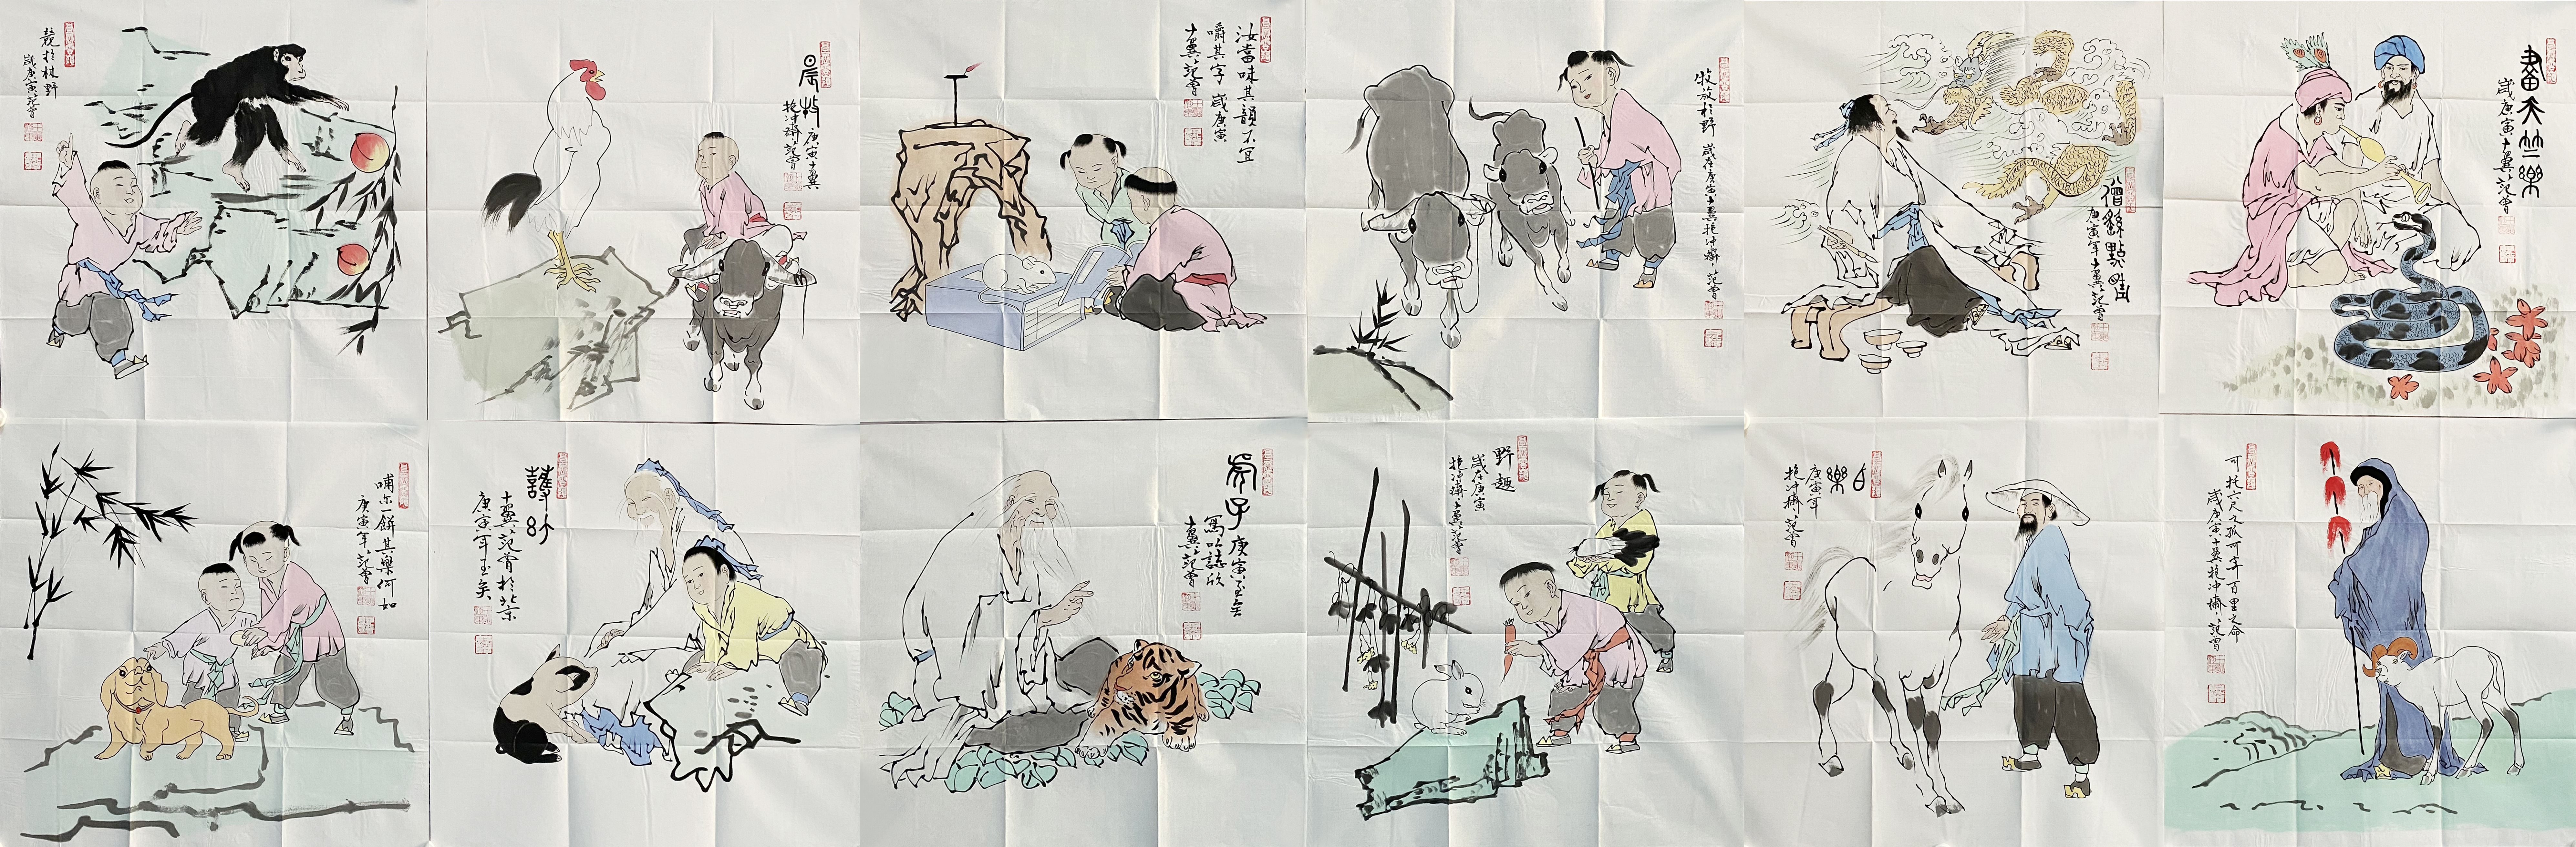 競於林野
歲庚寅范曾
晨牧
庚寅十翼
抱冲齋范曾
汝當味其韻不宜
嚼其字 歲庚寅
十翼范曾
牧放於野 歲在庚寅十翼抱冲齋范曾
僧繇點睛
庚寅年十翼范曾
畫天竺樂
歲庚寅十翼范曾
哺尔一餅其樂何如
庚寅年范曾
護竹
十翼范曾於北京
庚寅年玉矣
庚寅
十翼范曾
野趣
歲在庚寅
抱冲齋十翼范曾
庚寅年
抱冲齋范曾
可托六尺之孤可寄百里之命
歲庚寅十翼抱冲齋范曾